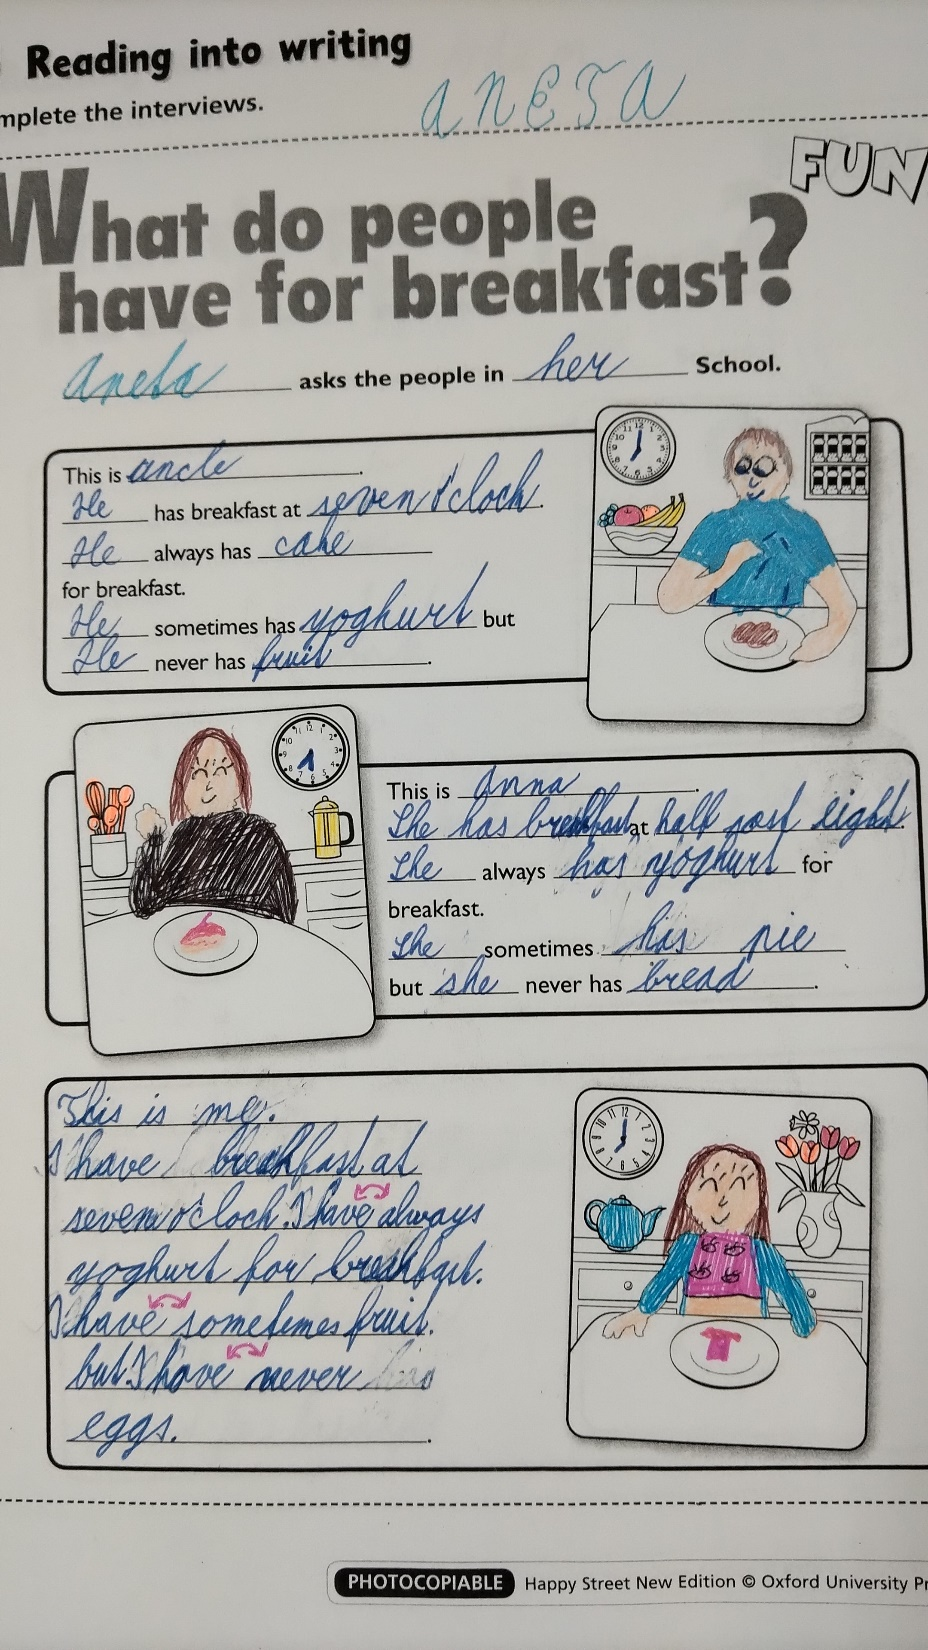 Reading into writing
mplete the interviews.
ANETA
FUN
What do people
have for breakfast?
Aneta asks the people in her School.
This is uncle.
He has breakfast at seven o'clock.
He always has cake
for breakfast.
He sometimes has yoghurt but
He never has fruit.
This is Anna.
She has breakfast at half past eight.
She always has yoghurt for
breakfast.
She sometimes has pie
but she never has bread.
This is me.
I have breakfast at
seven o'clock. I have always
yoghurt for breakfast.
I have sometimes fruit.
but I have never
eggs.
PHOTOCOPIABLE Happy Street New Edition © Oxford University Pr